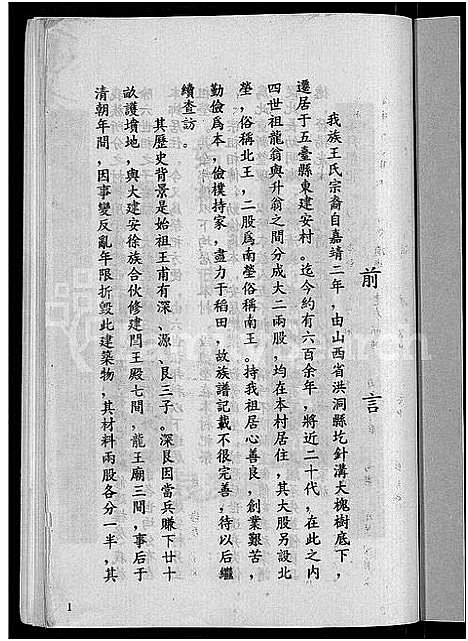 前言
我族王氏宗裔自嘉靖二年，由山西省洪洞縣圪針溝大槐樹底下，
遷居于五臺縣東建安村。迄今約有六百余年，將近二十代，在此之內
四世祖龍翁與升翁之間分成大二兩股，均在本村居住，其大股另設北
塋，俗稱北王，二股爲南塋俗稱南王。持我祖居心善良，創業艱苦，
勤儉爲本，儉樸持家，盡力于稻田，故族譜記載不很完善，待以后繼
續查訪。
其歷史背景是始祖王甫有深、源、艮三子。深艮因當兵賺下廿十
畝護墳地，與大建安徐族合伙修建閆王殿七間，龍王廟三間，事后于
清朝年間，因事變反亂年限折毀此建築物，其材料兩股各分一半，其
1